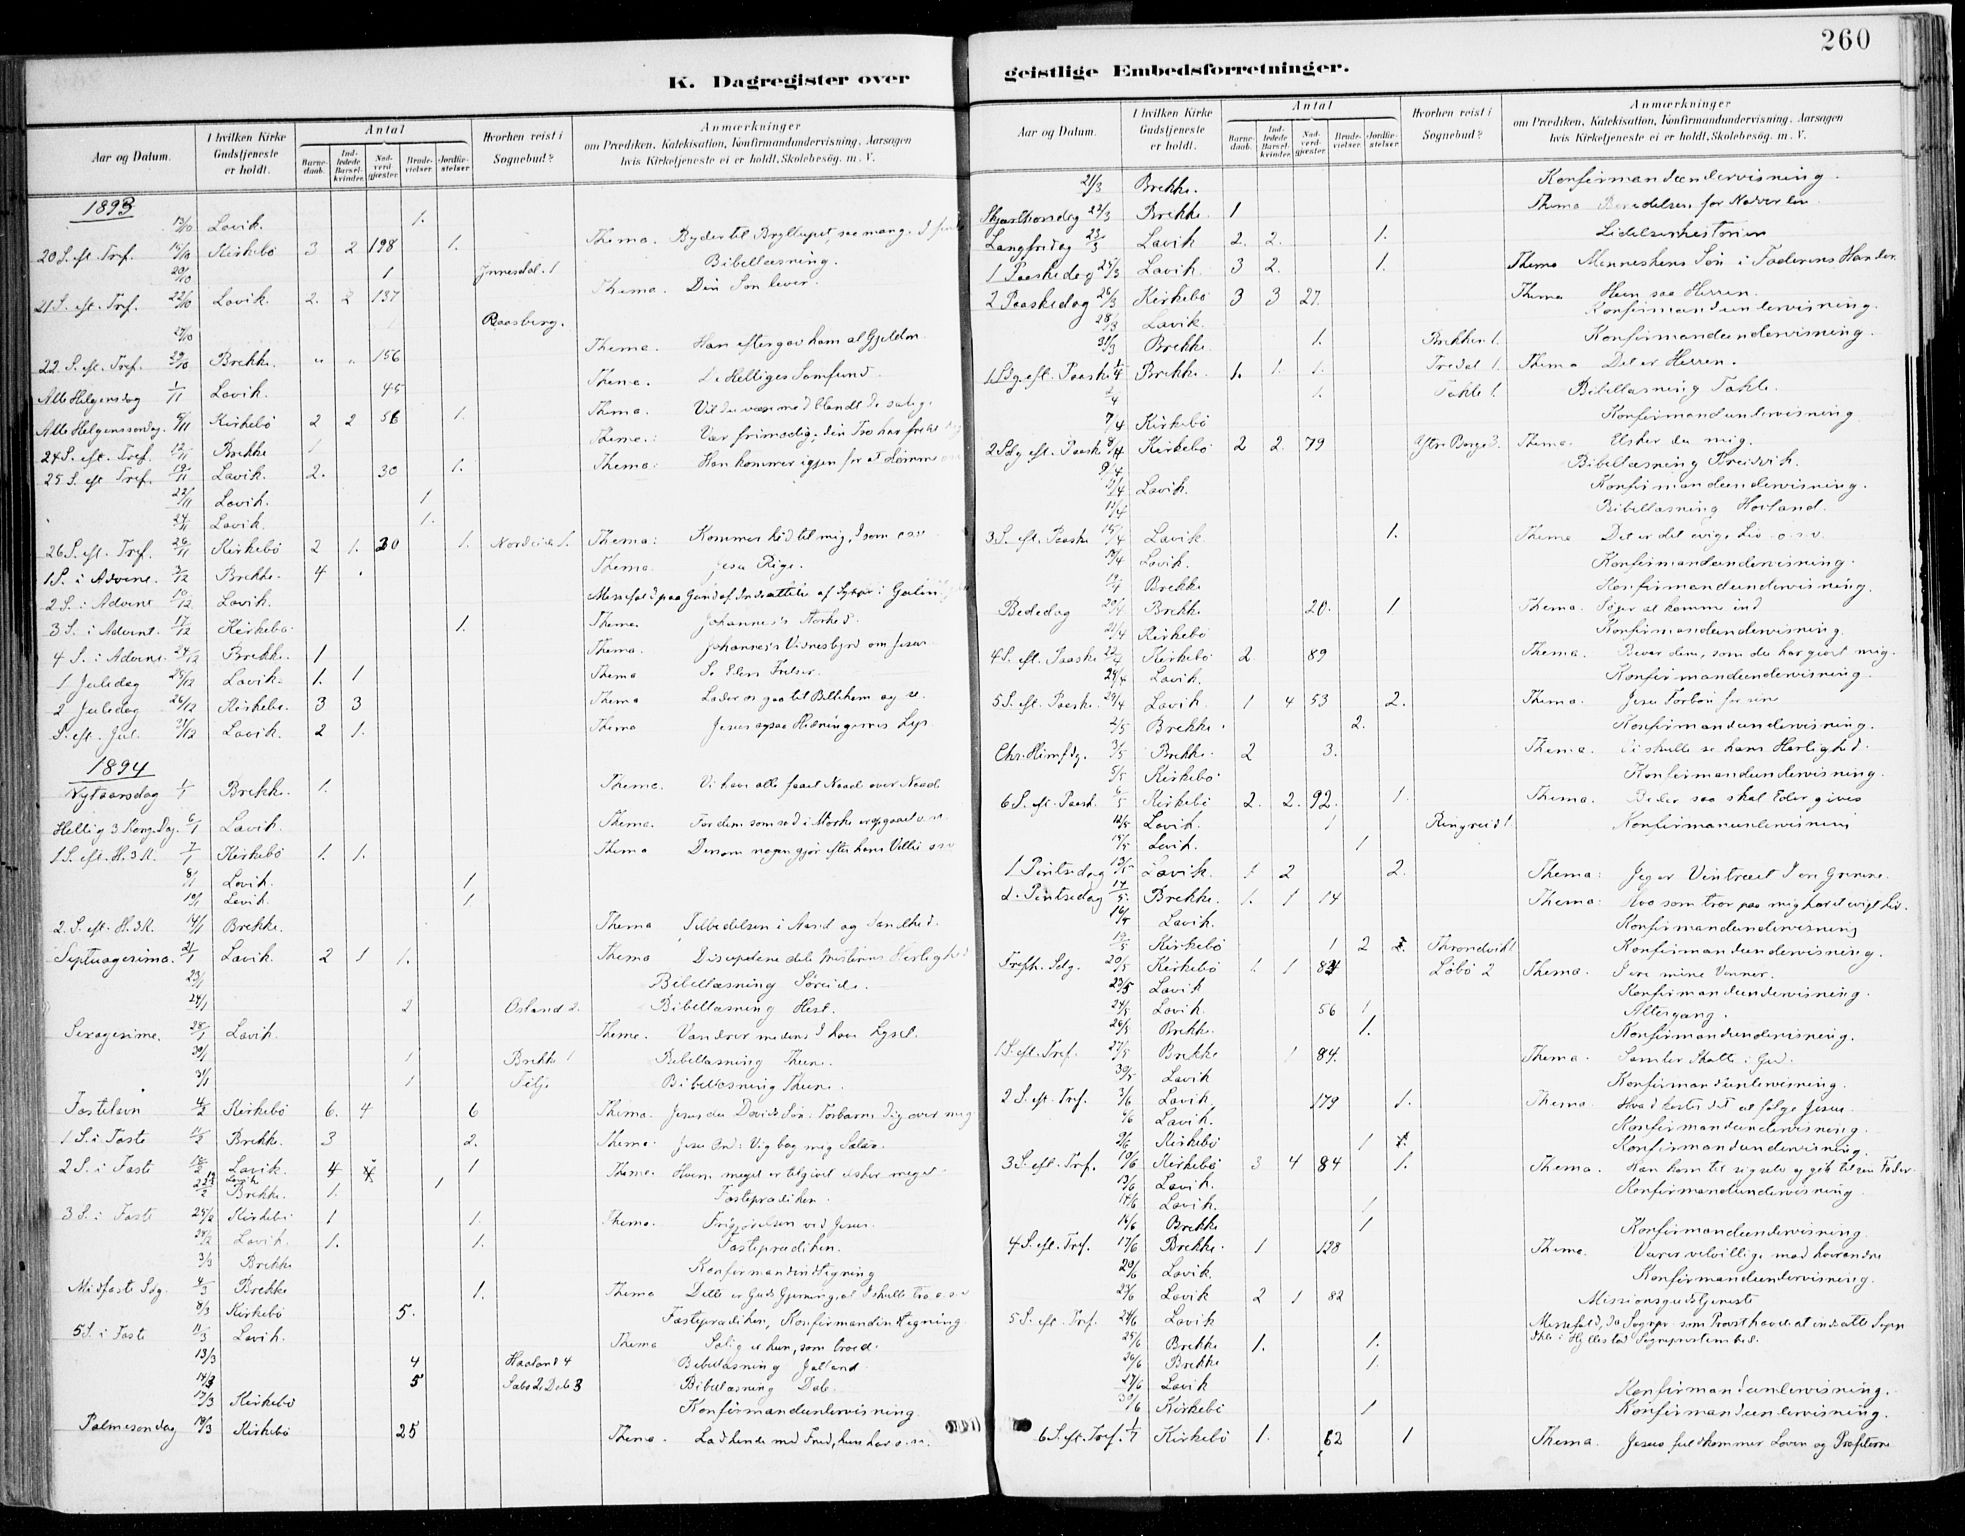 260
K. Dagregister over
geistlige Embedsforretninger.
Aar og Datum. I hvilken Kirke Gudstjeneste er holdt. Antal Barnedaab. Indledede Barselkvinder. Nadverdgjæster. Brudevielser. Jordfæstelser. Hvorhen reist i Sognebud? Anmærkninger om Prædiken, Katekisation, Konfirmandundervisning, Aarsagen hvis Kirketjeneste ei er holdt, Skolebesøg. m. V.
1893
13/10 Lavik. 1.
20 S. eft. Tref. 15/10 Kirkebö 3 2 198 1. Thema. Byder til Bryllupet, saa mange I
20/10 1 Innesdal. 1 Bibellæsning.
21 S. eft. Tref. 22/10 Lavik. 2. 2 137 Thema. Din Søn lever.
27/10 Raasberg.
22 S. eft. Tref. 29/10 Brekke. " " 156 Thema. Han eftergav ham al Gjelden
Alle Helgensdag 1/11 Lavik. 45 Thema. De Helliges Samfund.
Alle Helgenssondag. 5/11 Kirkebö 2 2 56 1. Thema.
24 S. eft. Tref. 12/11 Brekke 1 Thema: Vær frimodig, din Tro har frelst
25 S. eft Tref. 19/11 Lavik. 2. 30 1. Thema: Han kommer igjen for at dömme
22/11 Lavik. 1
24/11 Lavik. 1.
26 S. eft. Tref. 26/11 Kirkebö 2 1. 30 1. Nordvik 1. Thema: Kommer hid til mig, I som osv.
1 S. i Advent. 3/12 Brekke. 4 Thema. Jesu Rige.
2 S. i Advent 10/12 Lavik. Messefald paa Grund af Indsættelse af Sogpr. i Gulen
3 S. i Advent. 17/12 Kirkebö. 1. Thema. Johannes's Storhed.
4 S. i Advent. 24/12 Brekke. 1 Thema. Johannes's Vidnesbyrd om Jesus.
1 Juledag 25/12 Lavik. 1. 1 Thema Se Eders Frelser.
2 Juledag 26/12 Kirkebö. 3 3 Thema Lader os gaa til Bethlehem og se.
S. eft. Jul. 31/12 Lavik. 2 1. Thema Jesus ogsaa Hedningernes Lys.
1894
Nytaarsdag 1/1 Brekke. 1. Thema. Vi have alle faaet Naade over Naade
Hellig 3 Kong. Dag. 6/1 Lavik. Thema. For dem som sad i Mörke er opgaaet
1 S. eft. H. 3 K. 7/1 Kirkebö 1. 1. Thema Dersom nogen gjör efter hans Villie osv
8/1 Lavik. 1
10/1 Lavik. 1
2. S. eft. H. 3 K. 14/1 Brekke. Thema Tilbedelsen i Aand og Sandhed.
Septuagesima. 21/1 Lavik. 2 1 1. Thema Disciplene dele Mesterens Herlighed
23/1 Bibellæsning Söreide.
24/1 2 Osland 2. Bibellæsning Hest.
Sexagesima. 28/1 Lavik. Thema. Vandrer medens I have Lyset.
30/1 1 Brekke 1 Bibellæsning Thune.
31/1 1 Bibellæsning Thune.
Fastelavn 4/2 Kirkebö 6. 4 6 Thema. Jesus du Davids Søn: Forbarm dig over mig
1 S. i Faste 11/2 Brekke. 3 2. Thema. Jesu Ord: Vig bag mig Satan.
2 S. i Faste 18/2 Lavik. 4 1 Thema. Hvem meget er tilgivet elsker meget.
Lavik
Brekke. 1. 1 Fasteprædiken.
3 S. i Faste 25/2 Kirkebö 1 1. Thema. Frigjörelsen ved Jesus.
Lavik. 1. 1. Fasteprædiken.
3/3 Brekke Konfirmandindtegning
Midfaste Sdg. 4/3 Brekke 1. Thema Dette er Guds Gjerning, at I skulle tro o.s.v
8/3 Kirkebö 5. Fasteprædiken, Konfirmandindtegning.
5 S. i Faste 11/3 Lavik. Thema Salig er hun, som troede.
13/3 4 Haaland 4 Bibellæsning
14/3 5 Bibellæsning Dale.
17/3 Kirkebö Konfirmandundervisning.
Palmesondag 18/3 Kirkebö 25 Thema. Lad hende med Fred, hun har o.s.v.
Aar og Datum. I hvilken Kirke Gudstjeneste er holdt. Antal Barnedaab. Indledede Barselkvinder. Nadverdgjæster. Brudevielser. Jordfæstelser. Hvorhen reist i Sognebud? Anmærkninger om Prædiken, Katekisation, Konfirmandundervisning, Aarsagen hvis Kirketjeneste ei er holdt, Skolebesøg. m. V.
21/3 Brekke. Konfirmandundervisning.
Skjærthorsdag 22/3 Brekke. 1 Thema Beredelsen for Nadveren
Langfredag 23/3 Lavik 2. 2. 1. Lidelseshistorien
1 Paaskedag 25/3 Lavik. 3 2. 1. Thema Menneskens Søn i Faderens Hænder
2 Paaskedag 26/3 Kirkebö 3 3 27. Thema Hun saa Herren.
28/3 Lavik. Konfirmandundervisning.
31/3 Brekke. 1. Brekken 1. Konfirmandundervisning.
1 Sdg. eft. Paaske 1/4 Brekke. 1. 1. 1. Tredal 1. Thema Det er Herren.
2/4 1. Takle 1. Bibellæsning Takle.
7/4 Kirkebö Konfirmandundervisning
2 Sdg eft. Paaske 8/4 Kirkebö 2 2. 79 Thema. Elsker du mig.
9/4 Bibellæsning Torsvik.
Lavik. Konfirmandundervisning.
Bibellæsning Hovland.
3 S. eft. Paaske 15/4 Lavik. 1. Thema Det er det evige Liv o.s.v.
Lavik. Konfirmandundervisning.
19/4 Brekke Konfirmandundervisning.
Bededag 20/4 Brekke 20. 1 Thema. Söger at komme ind
21/4 Kirkebö Konfirmandundervisning.
4 S. eft. Paaske 22/4 Kirkebö 2 89 Thema. Bevar dem, som du har givet mig.
Lavik. Konfirmandundervisning.
5 S. eft. Paaske. 29/4 Lavik. 1 4 53 2. Thema. Jesu Forbön for sine
2/5 Brekke. 2. Konfirmandundervisning.
Chr. Himfdg. 3/5 Brekke. 2 3. Thema. Vi skulle se hans Herlighed.
5/5 Kirkebö Konfirmandundervisning.
6 S. eft. Paask. 6/5 Kirkebö 2. 2. 92. 1. Thema. Beder saa skal Eder gives
Lavik. 1 Ringereid 1 Konfirmandundervisning
Lavik. 1
1 Pintsedag 13/5 Lavik. 1 2 2. Thema: Jeg er Vintræet I ere Grenene.
2. Pintsedag 14/5 Brekke. 1. 1 14 Thema: Hvo som tror paa mig har det evigt Liv.
16/5 Lavik. Konfirmandundervisning
19/5 Kirkebö 1 2 Throndvik 1 Konfirmandundervisning.
Trefh. Sdg. 20/5 Kirkebö 1. 1 84 Löbö 2 Thema. I ere mine Venner.
23/5 Lavik Konfirmandundervisning.
24/5 Lavik. 56 1 Altergang.
26/5 Brekke. 1. Konfirmandundervisning.
1 S. eft. Tref. 27/5 Brekke 1 84. Thema. Samler Skatte i Gud.
30/5 Lavik Konfirmandundervisning.
2 S. eft. Tref. 3/6 Lavik. 179 1. Thema. Hvad koster det at følge Jesus.
6/6 Lavik. Konfirmandundervisning.
9/6 Kirkebö 1 Konfirmandundervisning.
3 S. eft. Tref. 10/6 Kirkebö 3 4 84 1. Thema. Han kom til sig selv og gik til sin Fader.
13/6 Lavik. Konfirmandundervisning.
14/6 Lavik. 1
16/6 Brekke 1 Konfirmandundervisning.
4 S. eft. Tref. 17/6 Brekke. 1 128 Thema. Værer velvillige mod hverandre
20/6 Lavik. Konfirmandundervisning.
Lavik 2 1 82 Missionsgudstjeneste
5 S. eft. Tref. 24/6 Lavik Messefald, da Sognpr. som Provst havde at indsætte Sogn
25/6 Brekke 1. 1. i Hyllestad Sogneprestembed.
26/6 Brekke 1.
27/6 Lavik Konfirmandundervisning.
30/6 Kirkebö 1 Konfirmandundervisning.
6 S. eft. Tref. 1/7 Kirkebö 1. 62 1 Thema. Jesus fuldkommer Loven og Profeterne